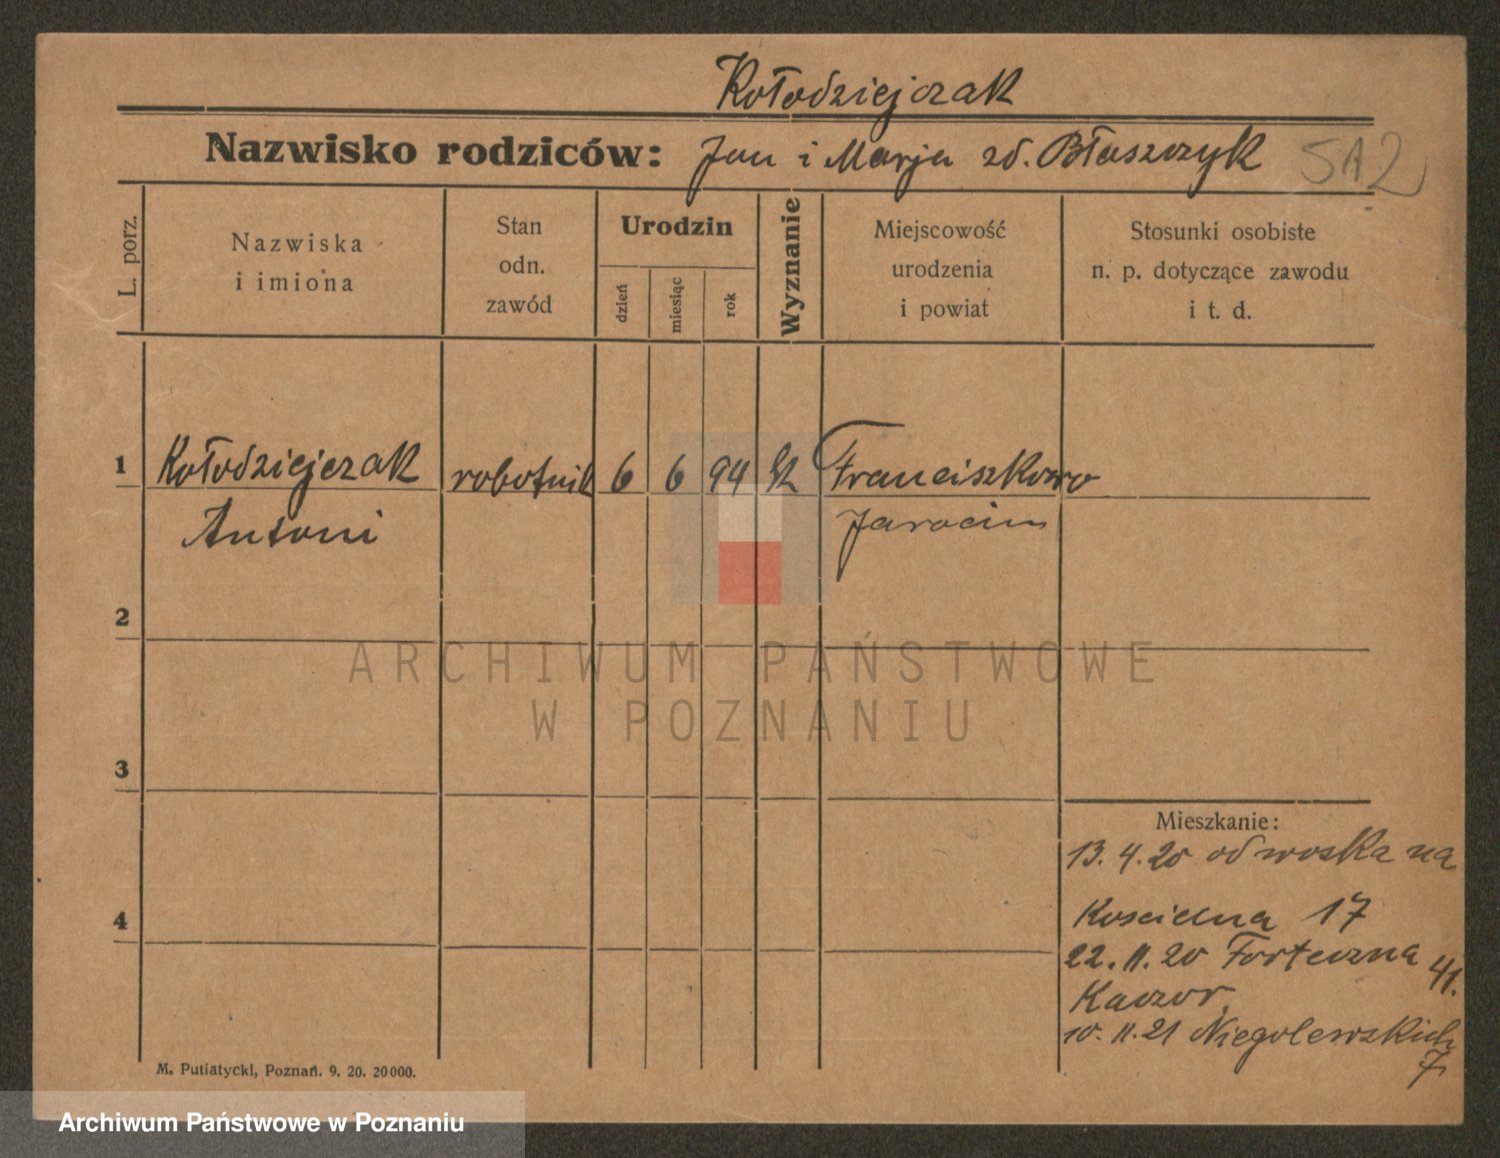 Kołodziejczak
Nazwisko rodziców: Jan i Marja zd. Błaszczyk 5A2
L. porz.
Nazwiska
i imiona
Stan
odn.
zawód
Urodzin
dzień
miesiąc
rok
Wyznanie
Miejscowość
urodzenia
i powiat
Stosunki osobiste
n. p. dotyczące zawodu
i t. d.
1 Kołodziejczak robotnik 6 6 94 Franciszkowo
Antoni Jarocin
2
ARCHIWUM PAŃSTWOWE
W POZNANIU
3
Mieszkanie:
13.4.20 od woska na
4 Koscielna 17
22.11.20 Forteczna 41.
Kaczor
10.11.21 Niegolewskich
7
M. Putiatycki, Poznań. 9. 20. 20000.
Archiwum Państwowe w Poznaniu